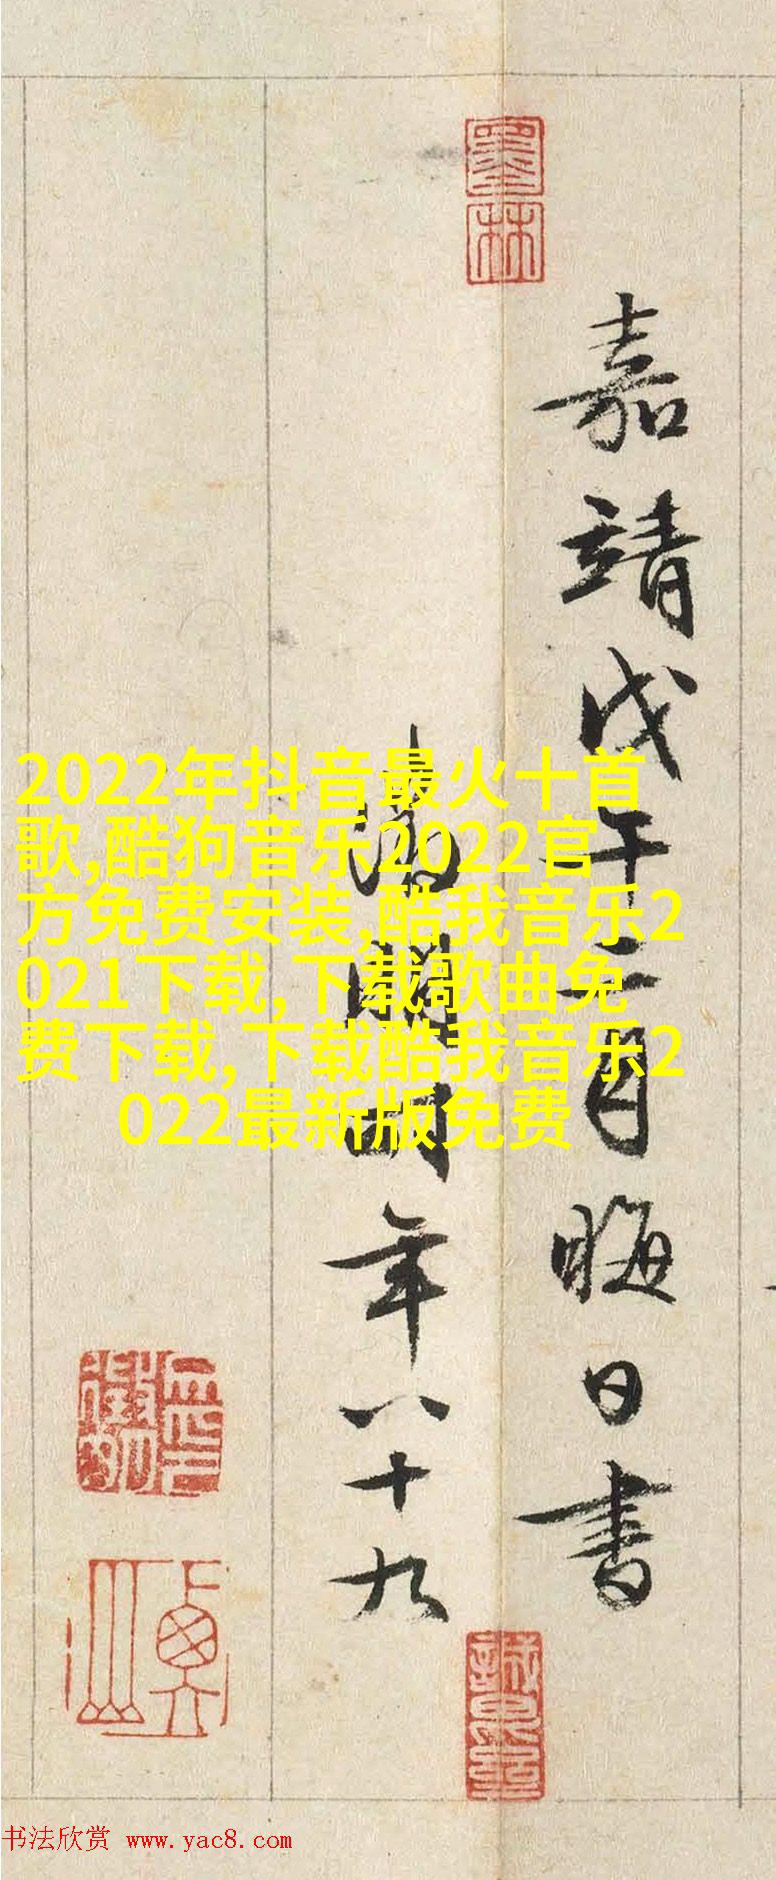 墨林
嘉靖戊午二月晦日書
徵明時年八十九
文徵明印
2022年抖音最火十首
歌,酷狗音乐2022官
方免费安装,酷我音乐2
021下载,下载歌曲免
费下载,下载酷我音乐2
022最新版免费
书法欣赏 www.yac8.com